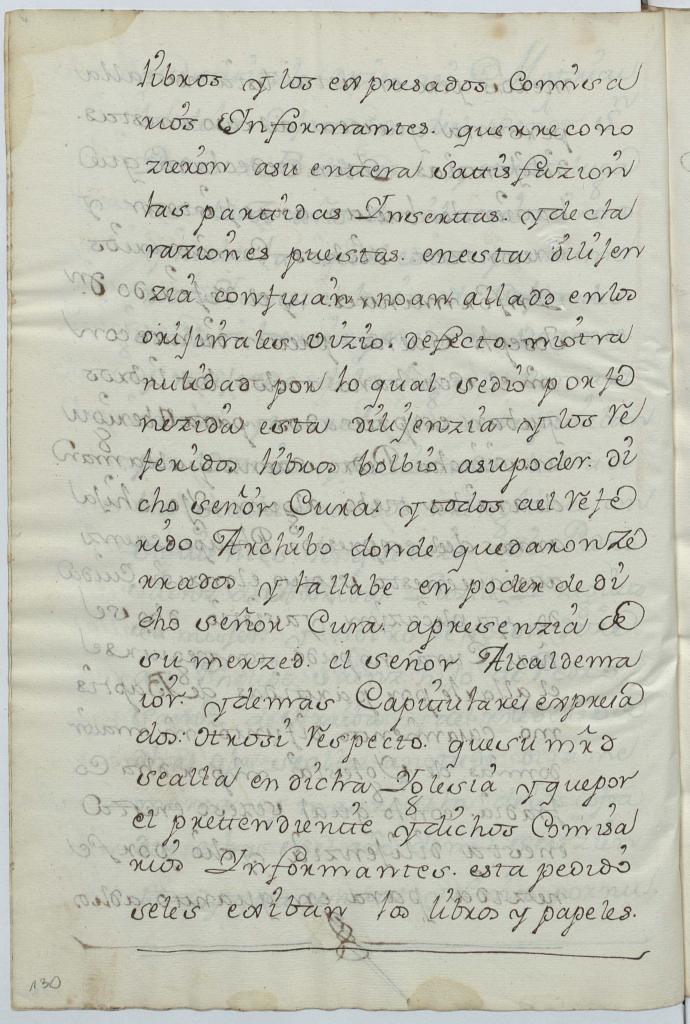 libros y los expresados, Comisa
rios Informantes. que rrecono
zieron asu enttera sattisfazion
las parttidas Inserttas. y decla
raziones puestas. en esta dilijen
zia confiesan no an allado en los
orijinales vizio. defecto. ni otra
nulidad por lo qual se dio por fe
nezida esta dilijenzia y los Re
feridos libros bolbio a su poder. di
cho señor Cura. y todos a el Refe
rido Archibo donde quedaron ze
rrados y la llabe en poder de di
cho señor Cura. a presenzia de
su merzed. el señor Alcalde ma
ior. y demas Capitulares expresa
dos: otrosi Respecto. que su mrd
se alla en dicha Iglesia y que por
el prettendiente y dichos Comisa
rios Informantes. esta pedido
seles exiban los libros y papeles.
130